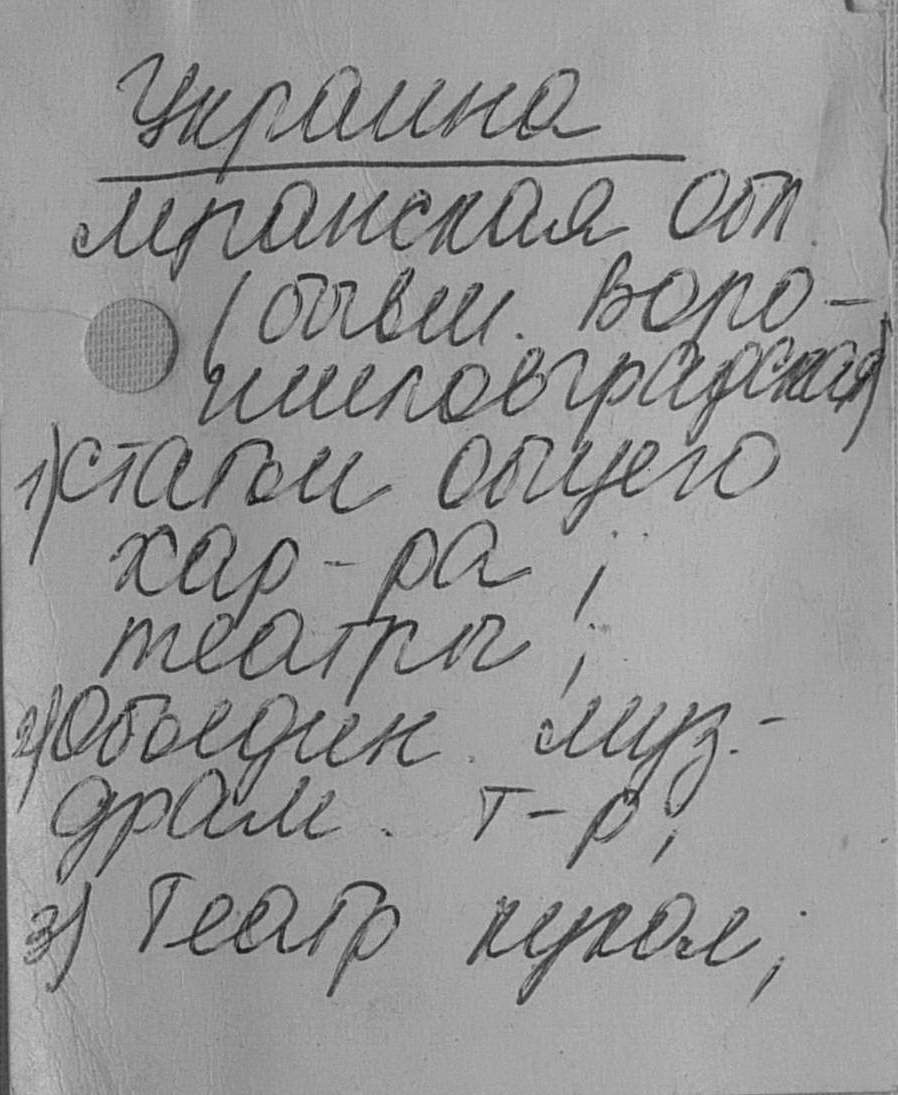 Украина
Луганская обл.
(бывш. Воро-
шиловградская)
1) статьи общего
хар-ра ;
театры ;
2) Объедин. муз.-
драм. т-р;
3) Театр кукол;